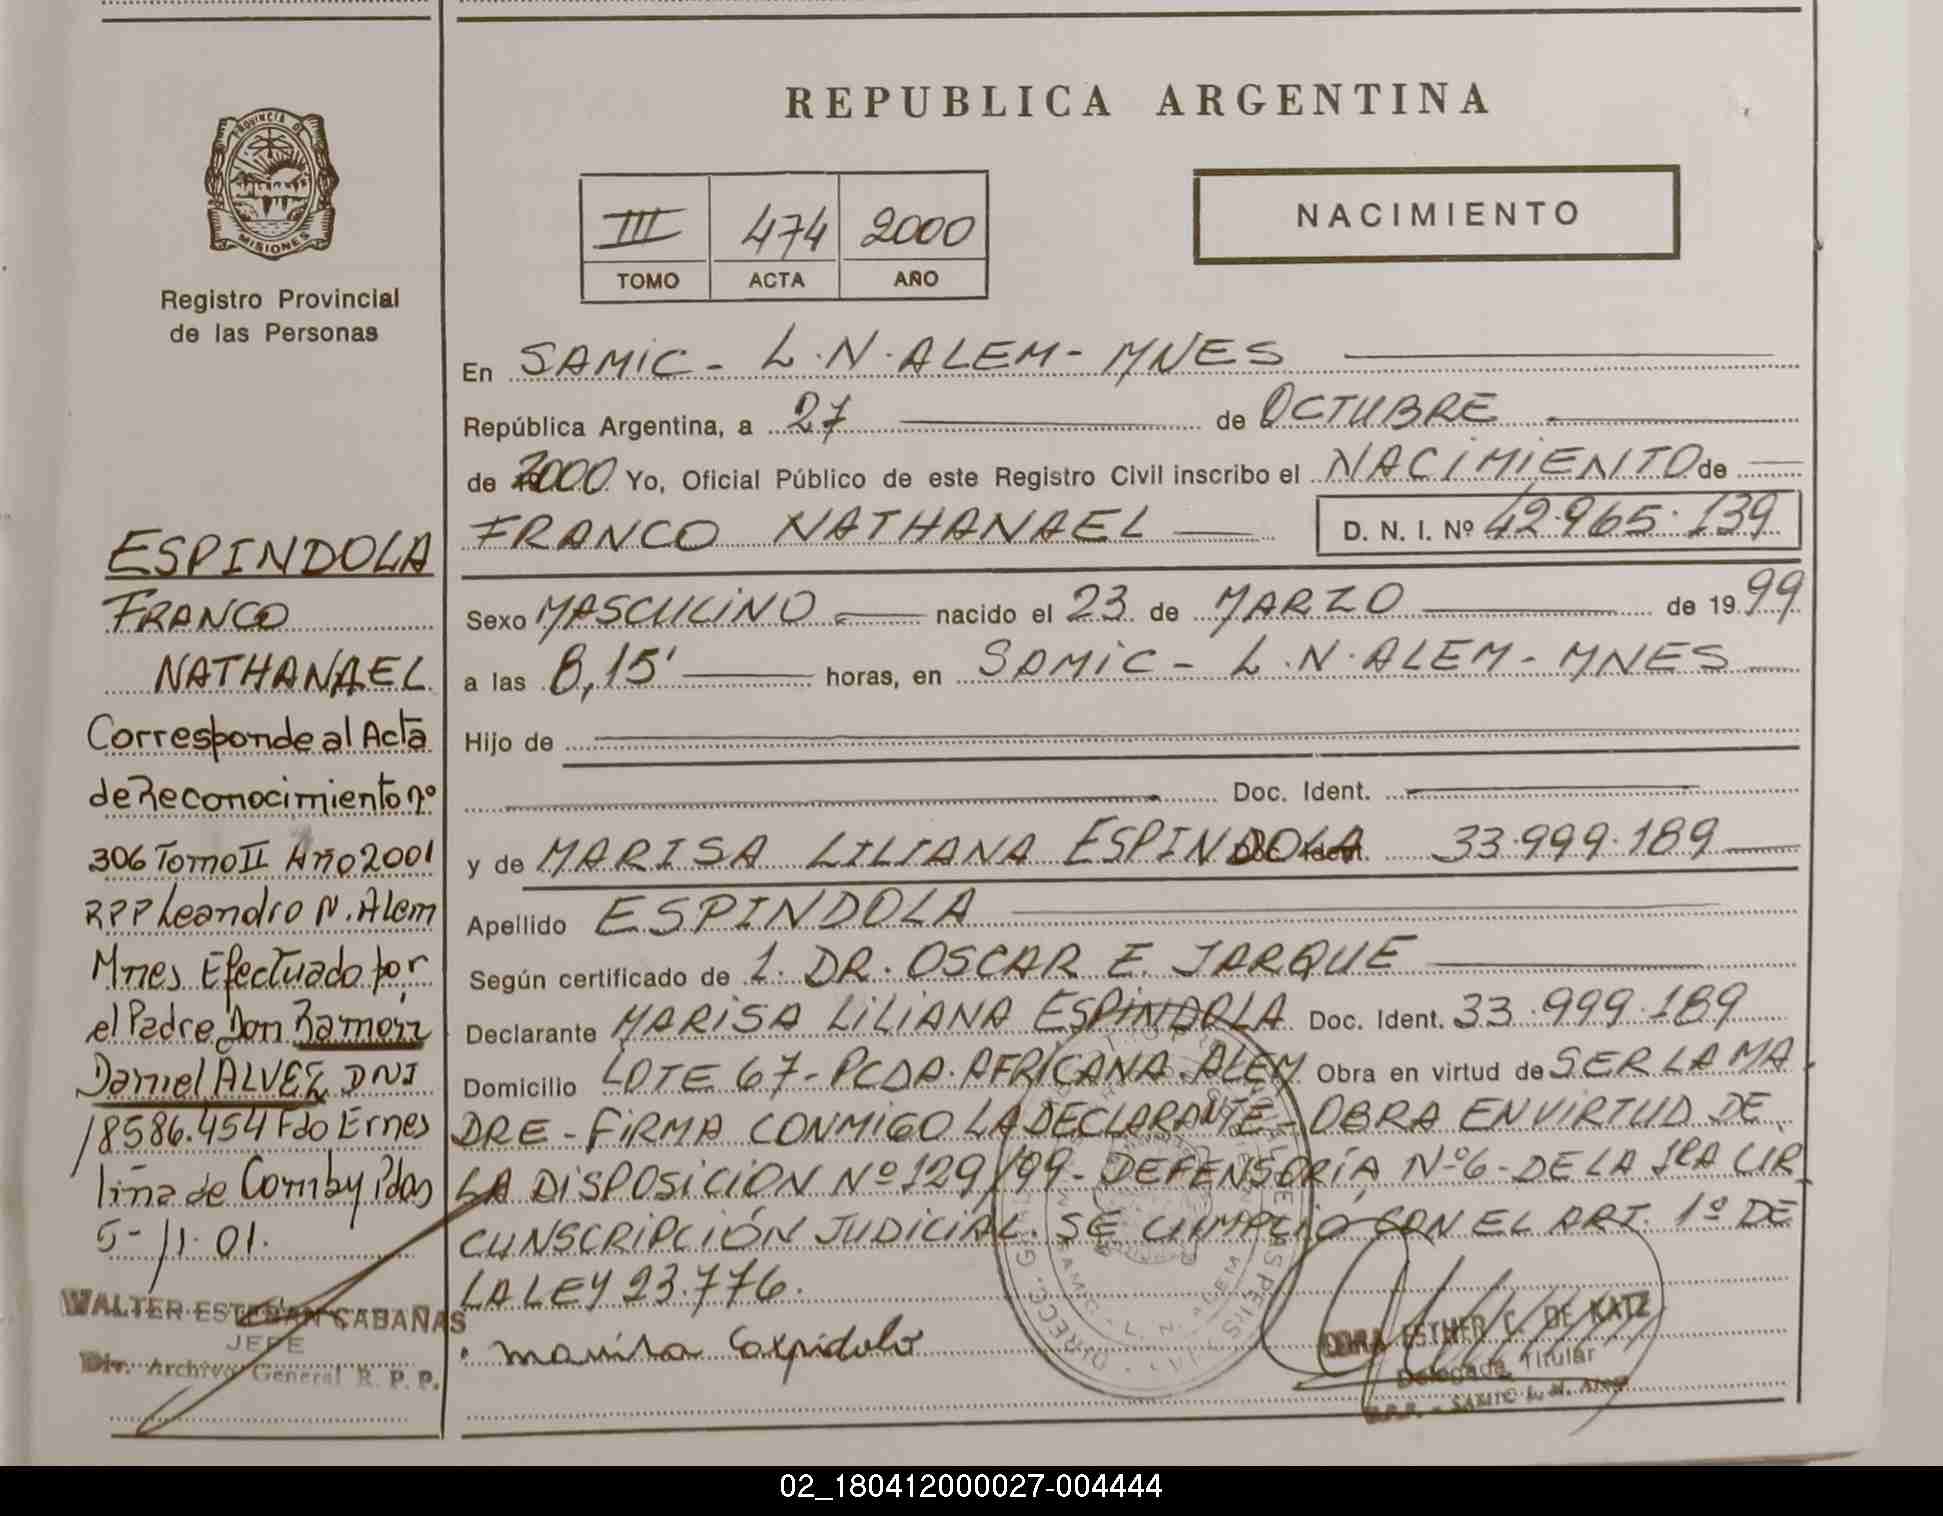 REPUBLICA ARGENTINA
PROVINCIA DE
MISIONES
Registro Provincial
de las Personas
III 474 2000
TOMO ACTA AÑO
NACIMIENTO
En SAMIC - L.N.ALEM - MNES
República Argentina, a 27 de OCTUBRE
de 2000 Yo, Oficial Público de este Registro Civil inscribo el NACIMIENTO de
FRANCO NATHANAEL D. N. I. Nº 42.965.139
Sexo MASCULINO nacido el 23 de MARZO de 1999
a las 8,15' horas, en SAMIC - L.N.ALEM - MNES
Hijo de
Doc. Ident.
y de MARISA LILIANA ESPINDOLA Doc. Ident. 33.999.189
Apellido ESPINDOLA
Según certificado de 1. DR. OSCAR E. JARQUE
Declarante MARISA LILIANA ESPINDOLA Doc. Ident. 33.999.189
Domicilio LOTE 67 - PCDA. AFRICANA - ALEM Obra en virtud de SER LA MA
DRE - FIRMA CONMIGO LA DECLARANTE - OBRA EN VIRTUD DE
LA DISPOSICION Nº 129/99 - DEFENSORÍA Nº 6 - DE LA 1RA CIR
CUNSCRIPCIÓN JUDICIAL. SE CUMPLIO CON EL ART. 1º DE
LA LEY 23.776.
ESPINDOLA
FRANCO
NATHANAEL
Corresponde al Acta
de Reconocimiento nº
306 Tomo II Año 2001
RPP Leandro N. Alem
Mnes Efectuado por
el Padre Don Ramon
Daniel ALVEZ DNI
18586.454 Fdo Ernes
tina de Comby Pdas
5-11-01.
WALTER ESTEBAN CABAÑAS
JEFE
Div. Archivo General R. P. P.
ESTHER C. DE KATZ
Delegada Titular
R.P.P. - SAMIC L. N. Alem
SAMIC - L. N. ALEM
02_180412000027-004444